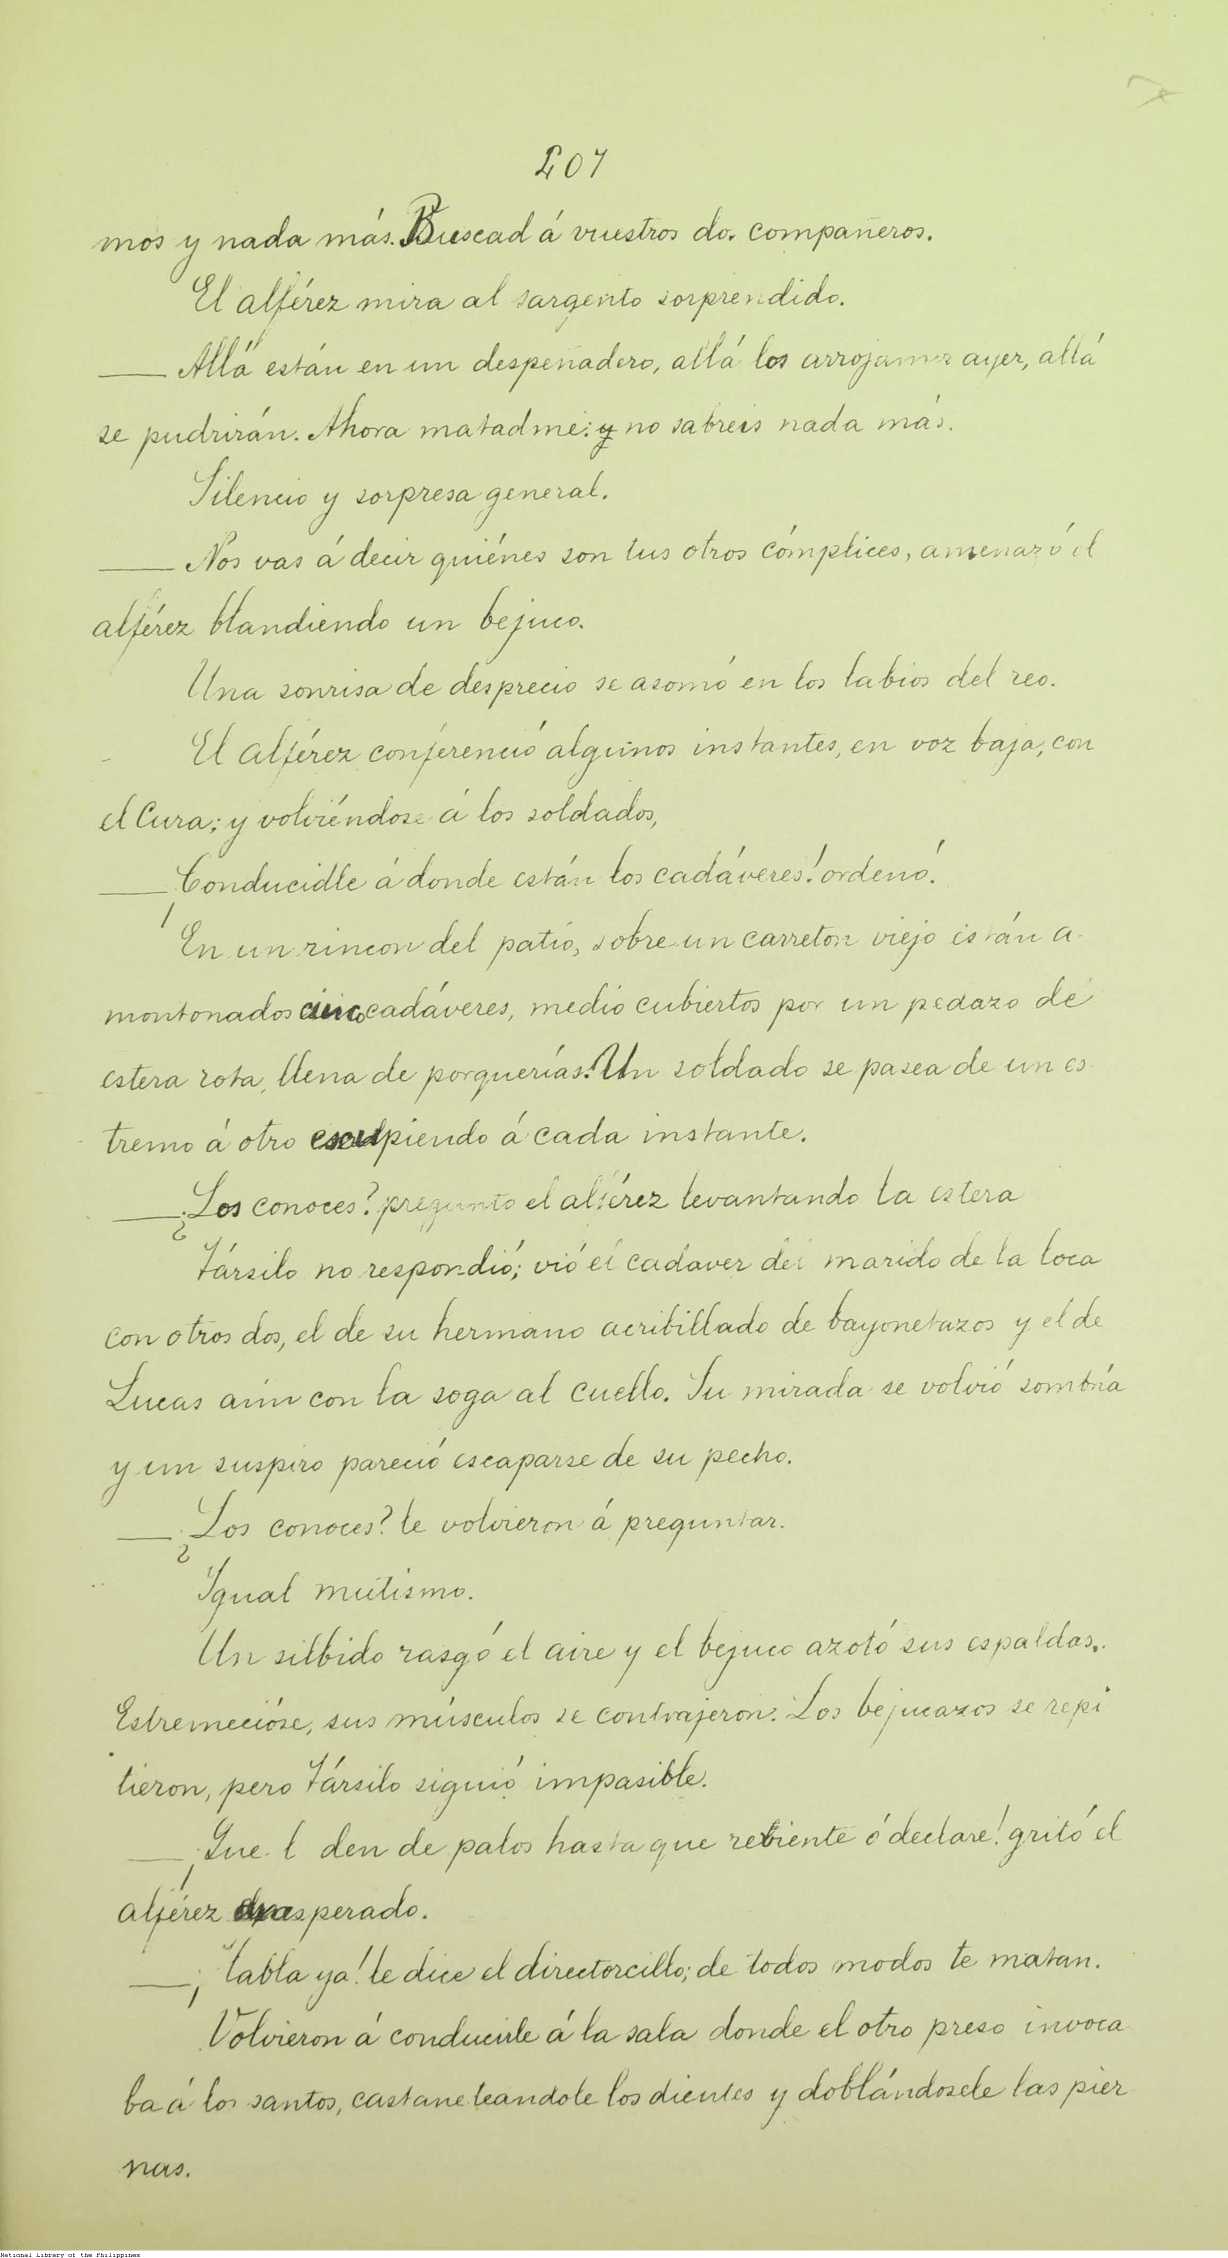 407
mos y nada más. Buscad á vuestros dos compañeros.
El alférez mira al sargento sorprendido.
— Allá están en un despeñadero, allá los arrojamos ayer, allá
se pudrirán. Ahora matadme: y no sabreis nada más.
Silencio y sorpresa general.
— Nos vas á decir quiénes son tus otros cómplices, amenazó el
alférez blandiendo un bejuco.
Una sonrisa de desprecio se asomó en los labios del reo.
El alférez conferenció algunos instantes, en voz baja, con
el Cura; y volviéndose á los soldados,
— ¡Conducidle á donde están los cadáveres! ordenó.
En un rincon del patio, sobre un carreton viejo están a-
montonados cinco cadáveres, medio cubiertos por un pedazo de
estera rota, llena de porquerías. Un soldado se pasea de un es-
tremo á otro escupiendo á cada instante.
— ¿Los conoces? preguntó el alférez levantando la estera
Társilo no respondió; vió el cadaver del marido de la loca
con otros dos, el de su hermano acribillado de bayonetazos y el de
Lucas aún con la soga al cuello. Su mirada se volvió sombría
y un suspiro pareció escaparse de su pecho.
— ¿Los conoces? le volvieron á preguntar.
Igual mutismo.
Un silbido rasgó el aire y el bejuco azotó sus espaldas.
Estremecióse, sus músculos se contrajeron. Los bejucazos se repi
tieron, pero Társilo siguió impasible.
— ¡Que l den de palos hasta que reviente ó declare! gritó el
alférez exasperado.
— ¡Habla ya! le dice el directorcillo; de todos modos te matan.
Volvieron á conducirle á la sala donde el otro preso invoca
ba á los santos, castaneteandole los dientes y doblándosele las pier
nas.
National Library of the Philippines